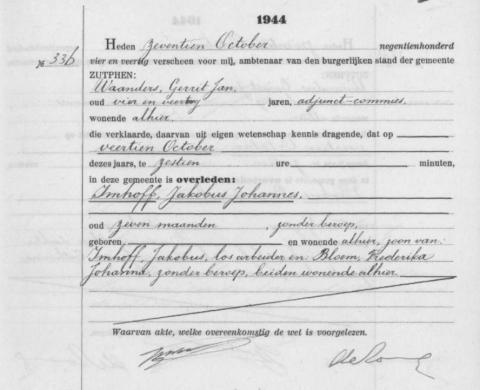 1944
Heden zeventien October negentienhonderd
№ 336
vier en veertig verscheen voor mij, ambtenaar van den burgerlijken stand der gemeente
ZUTPHEN:
Waanders, Gerrit Jan,
oud vier en veertig jaren, adjunct-commies.
wonende alhier.
die verklaarde, daarvan uit eigen wetenschap kennis dragende, dat op
veertien October
dezes jaars, te zestien ure minuten,
in deze gemeente is overleden:
Imhoff, Jakobus Johannes,
oud zeven maanden , zonder beroep,
geboren, en wonende alhier, zoon van:
Imhoff, Jakobus, los arbeider en Bloem, Frederika
Johanna, zonder beroep, beiden wonende alhier.
Waarvan akte, welke overeenkomstig de wet is voorgelezen.